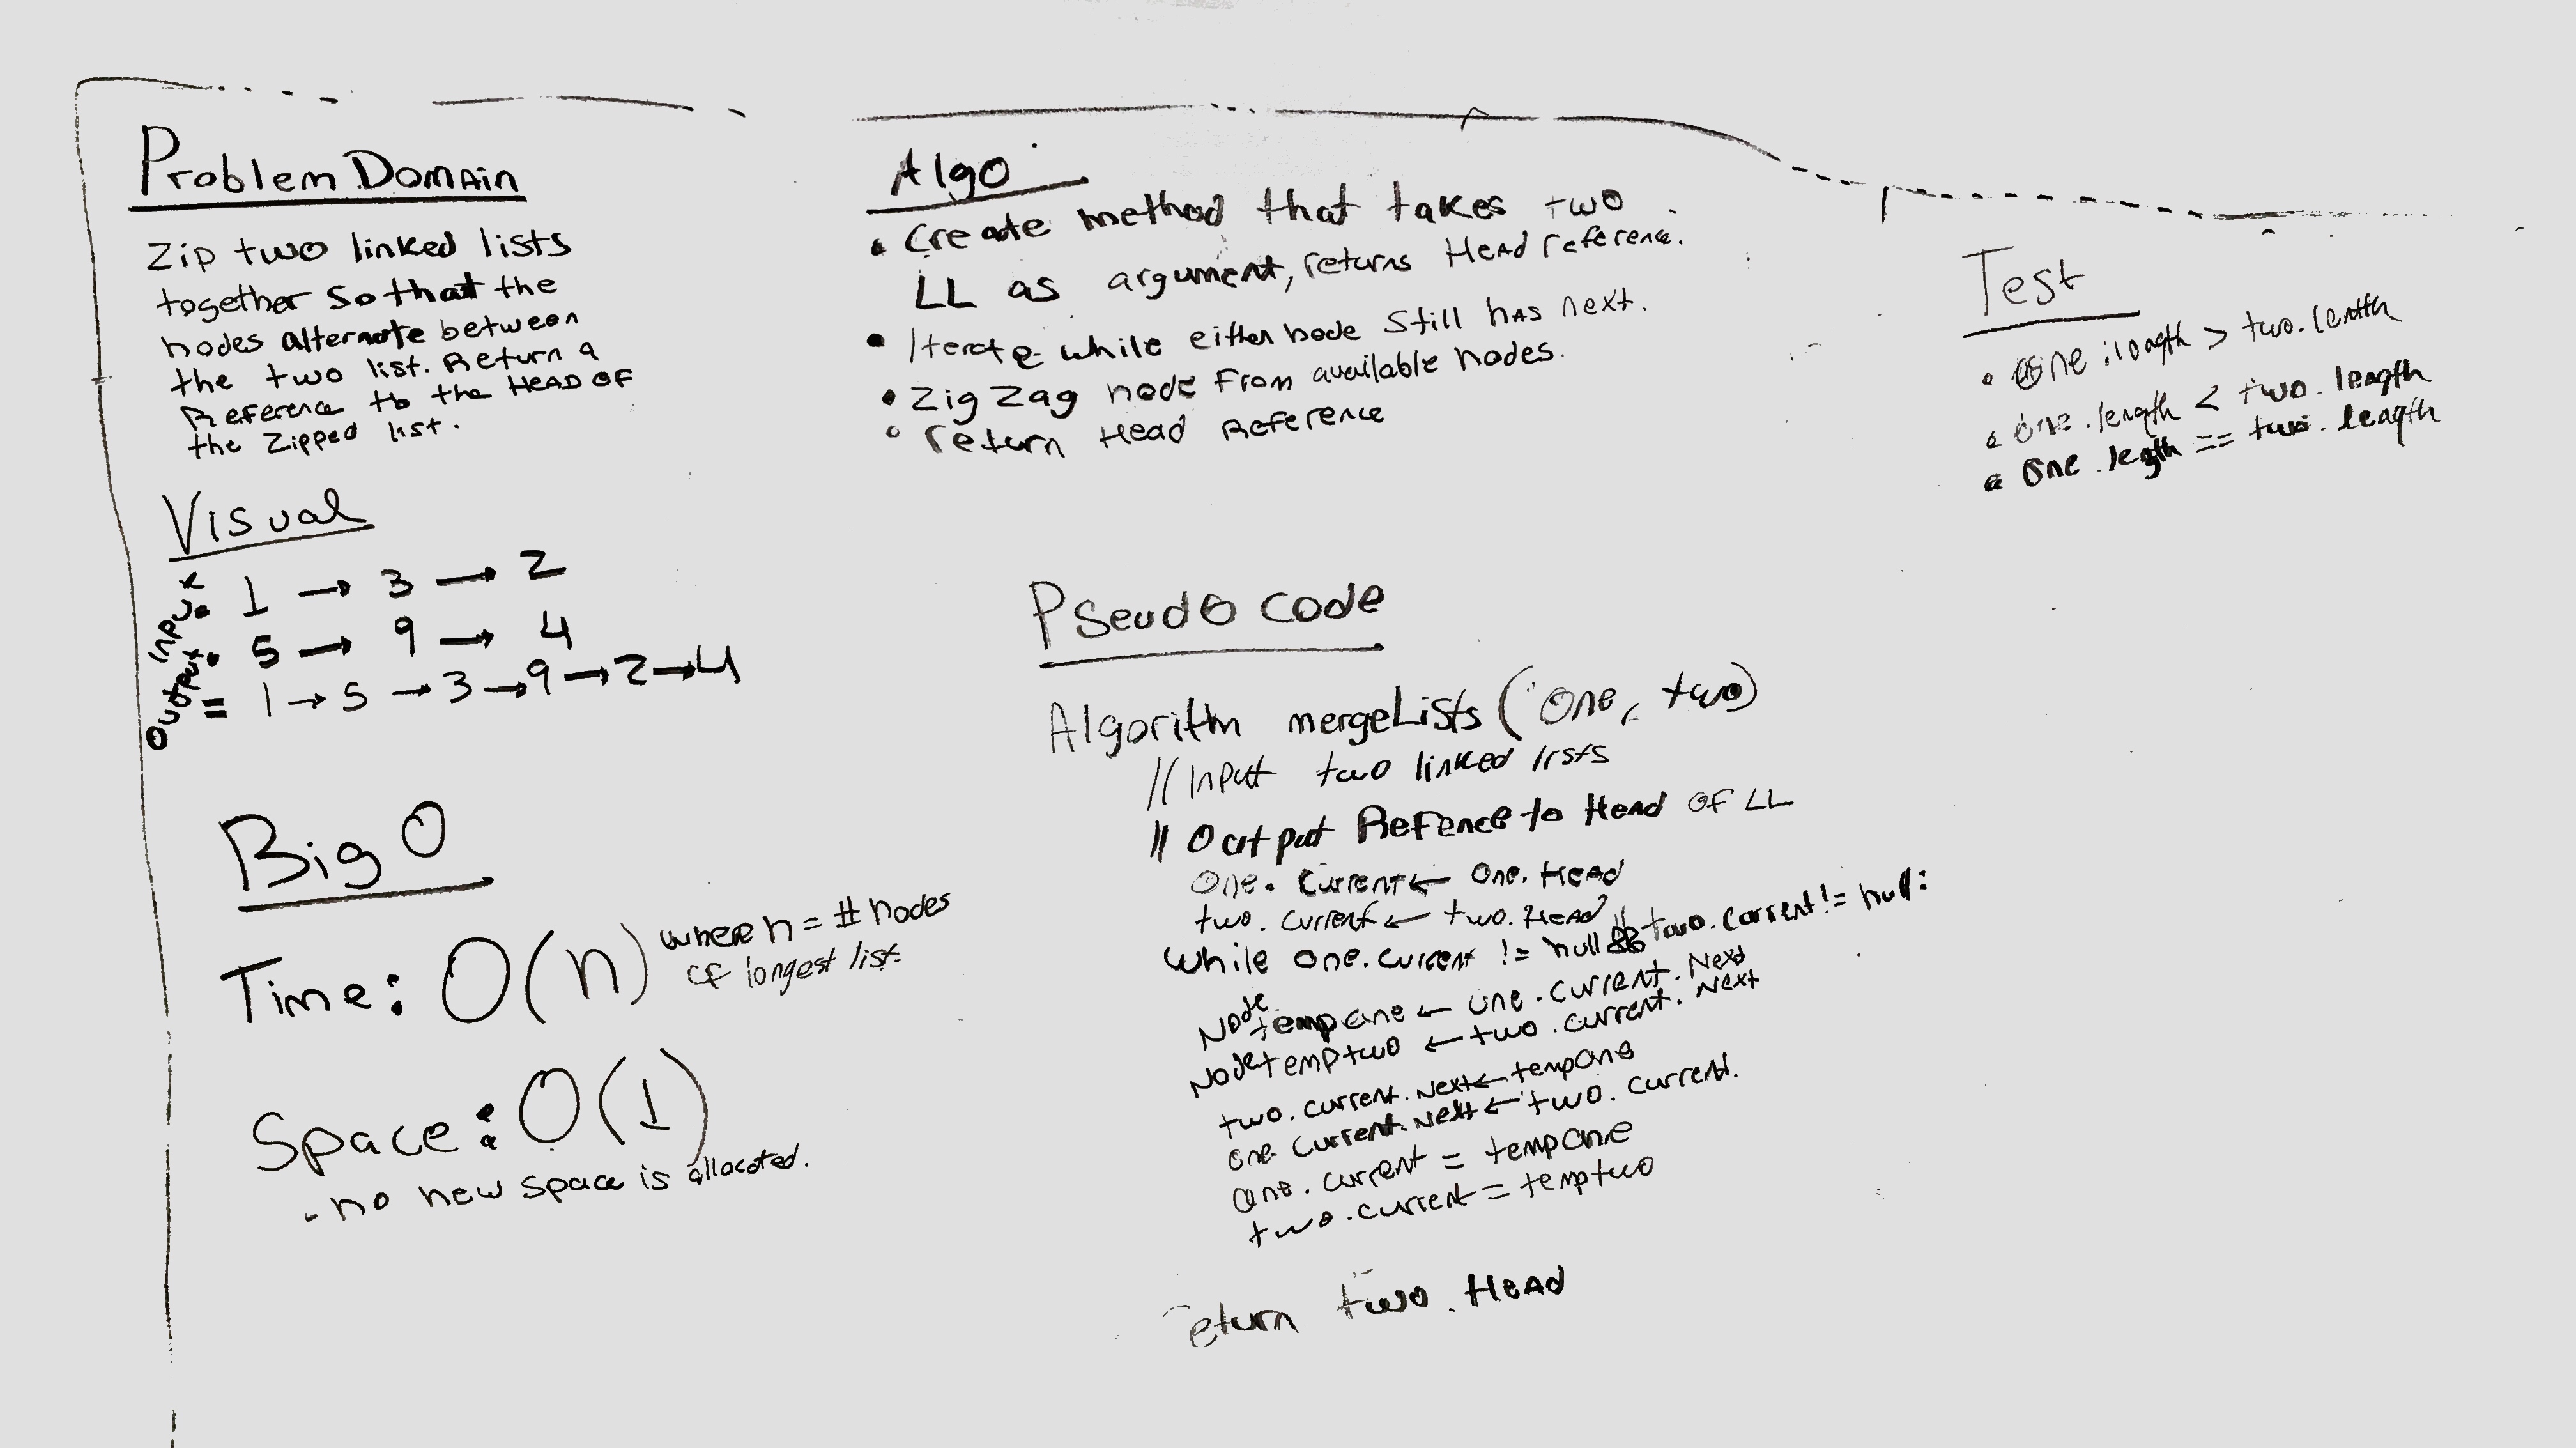 Problem Domain
Zip two linked lists
together so that the
nodes alternate between
the two list. Return a
Reference to the HEAD OF
the Zipped list.
Visual
Input
1 → 3 → 2
5 → 9 → 4
Output
= 1 → 5 → 3 → 9 → 2 → 4
Big O
Time: O(n) where n = # nodes
of longest list.
Space: O(1)
- no new space is allocated.
Algo
• Create method that takes two
LL as argument, returns Head reference.
• Iterate while either node still has next.
• Zig Zag node from available nodes.
• return Head Reference
Pseudo code
Algorithm mergeLists (One, two)
// Input two linked lists
// Output Refence to Head of LL
One. Current ← One. Head
two. Current ← two. Head
while one.current != null || two.current != null:
Node tempOne ← one.current.Next
Node temptwo ← two.current.Next
two.current.Next ← tempOne
one current.Next ← two.current.
one.current = tempOne
two.current = temptwo
return two.Head
Test
• One.length > two.lenth
• One.length < two.length
• One.legth == two.length